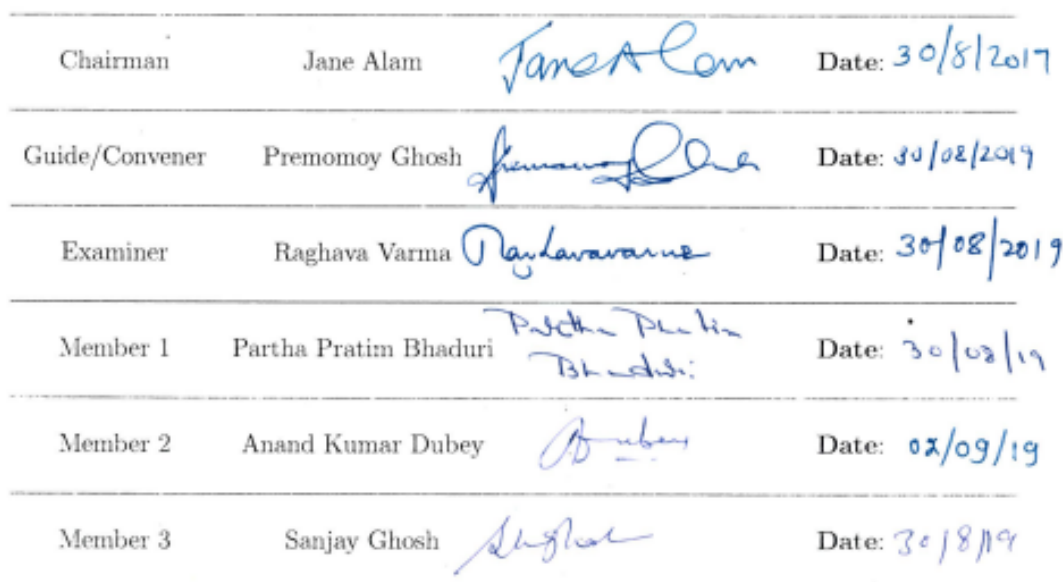 Chairman Jane Alam Jane Alam Date: 30/8/2017
Guide/Convener Premomoy Ghosh Date: 30/08/2019
Examiner Raghava Varma Raghavavarma Date: 30/08/2019
Member 1 Partha Pratim Bhaduri Partha Pratim Bhaduri Date: 30/08/19
Member 2 Anand Kumar Dubey ADubey Date: 02/09/19
Member 3 Sanjay Ghosh Date: 30/8/19